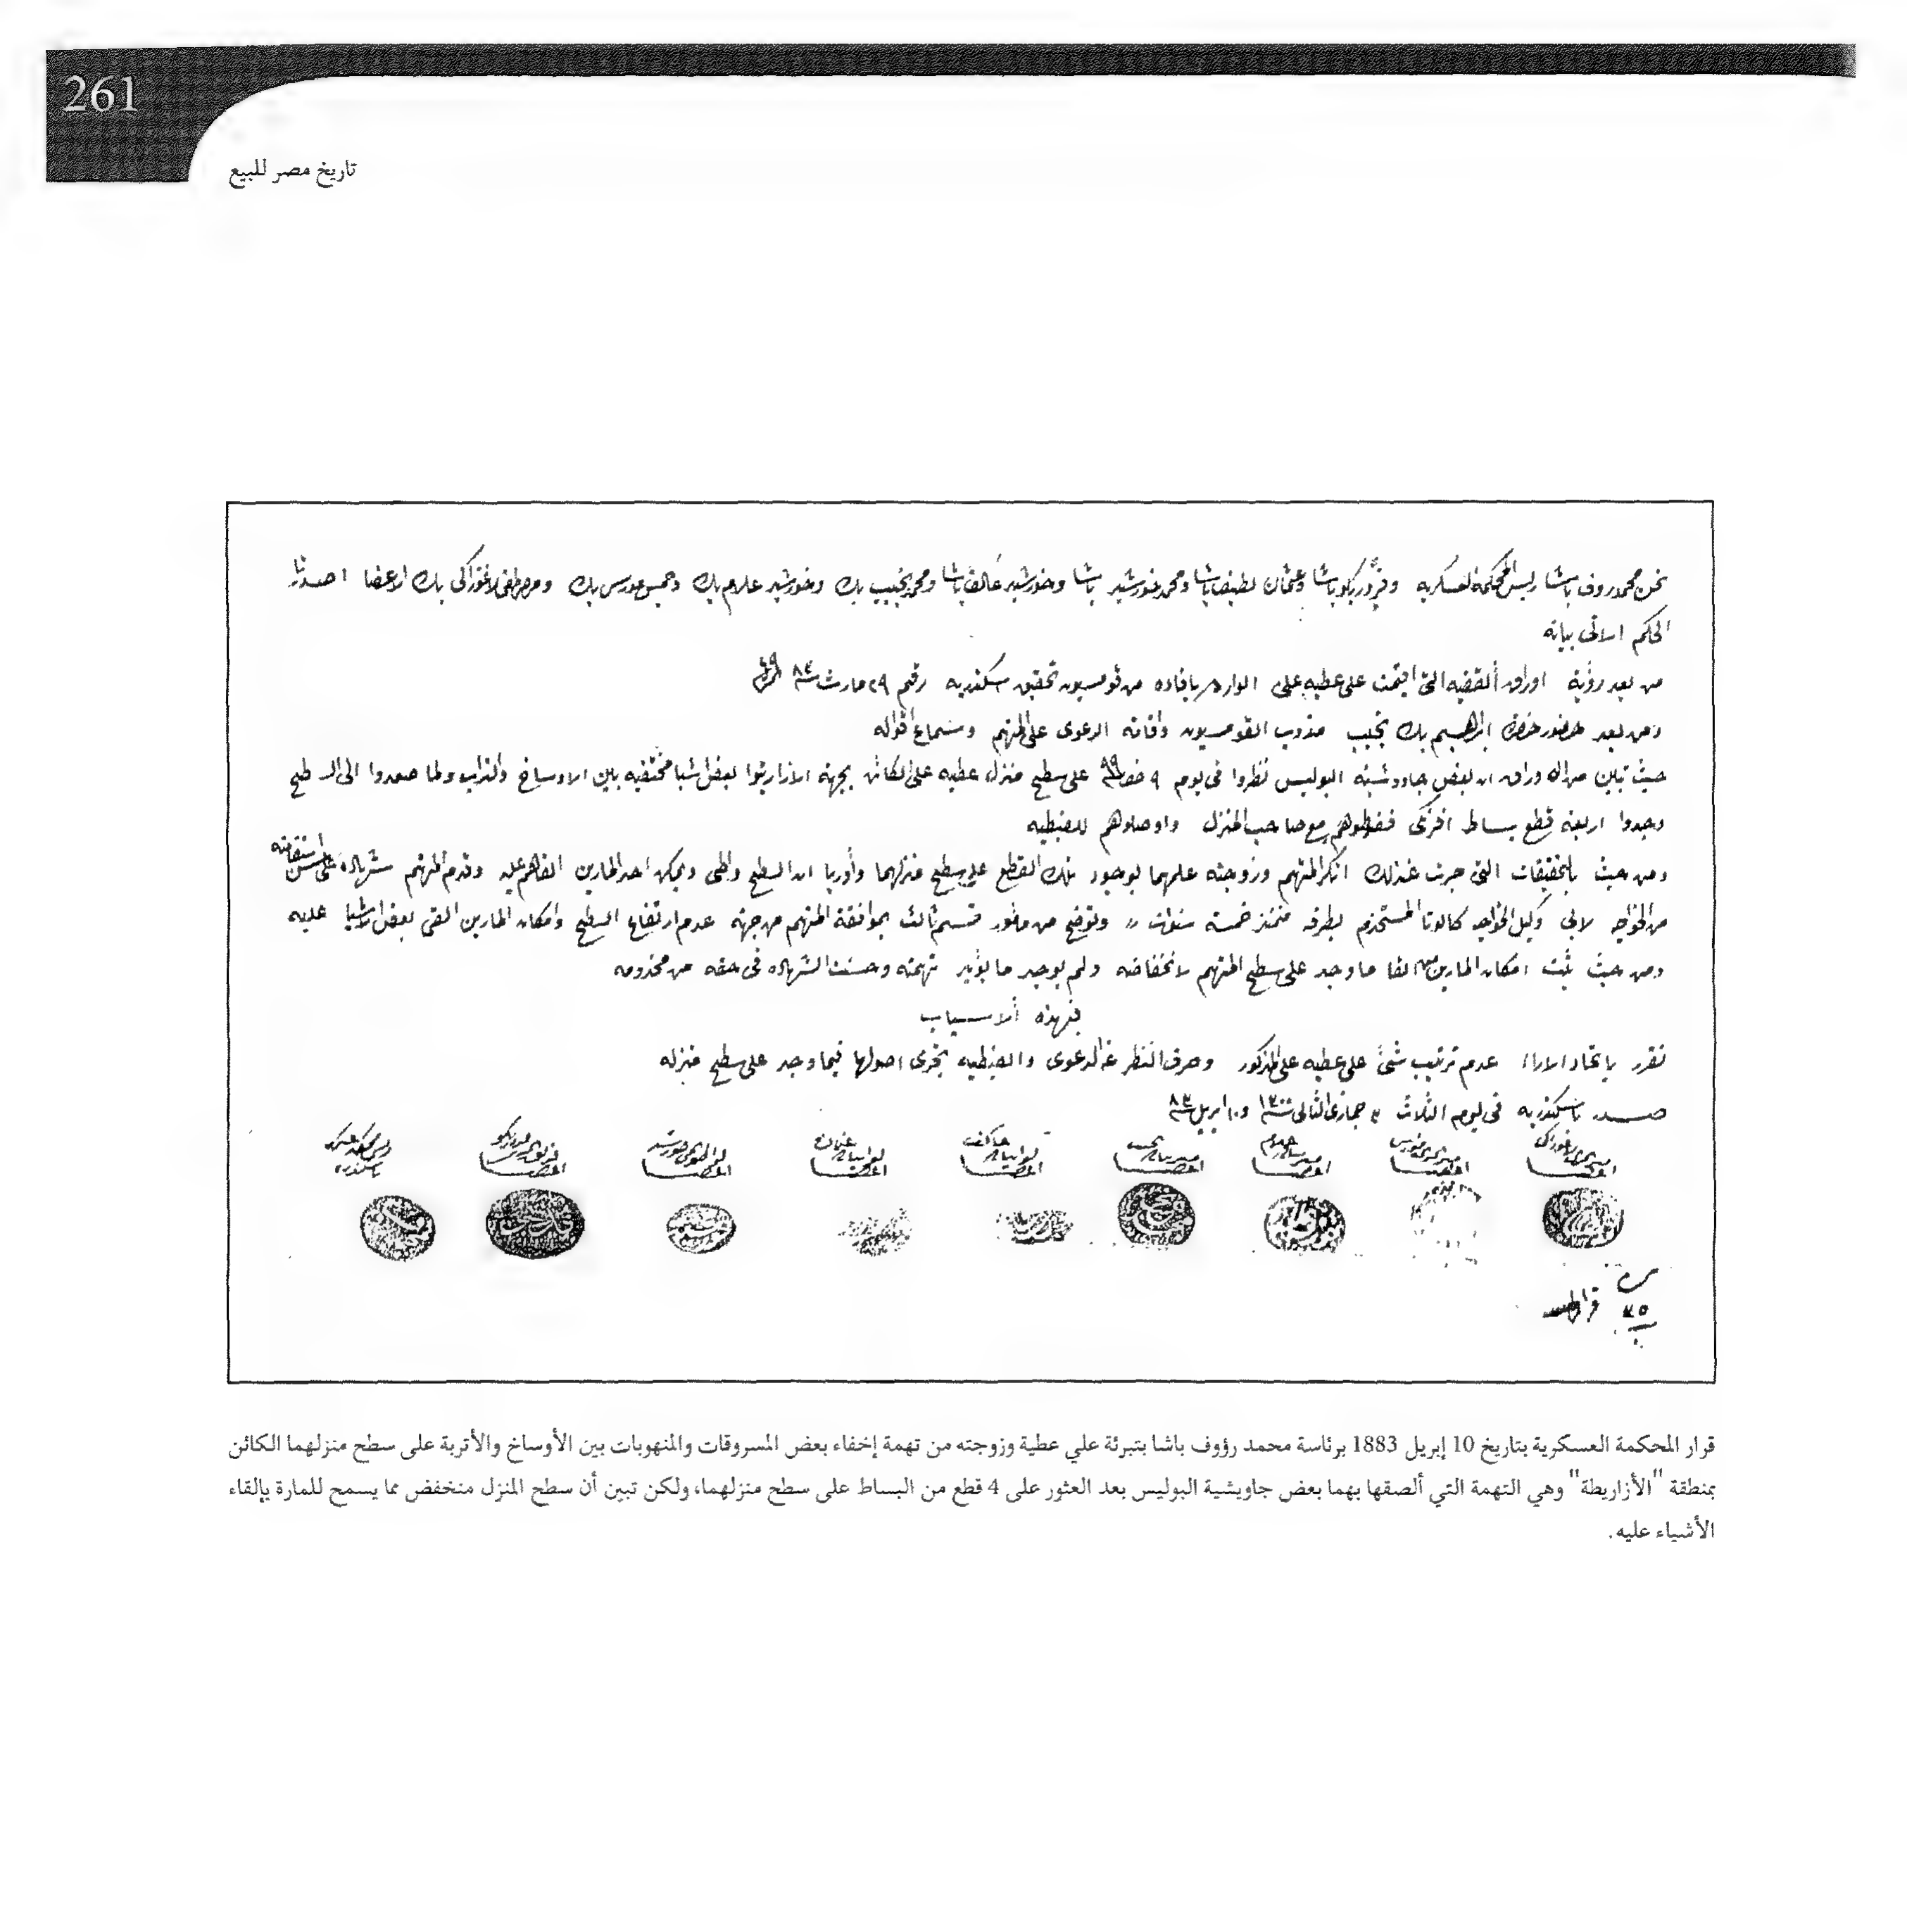 261
تاريخ مصر للبيع
نحن محمد روف باشا ريس المحكمة العسكريه وفردريكو باشا وعثمان لطيف باشا ومحمد خورشيد باشا وخورشيد عاكف باشا ومحمد نجيب بك وخورشيد علام بك بك ومصطفى بك الاعضا اصدرنا
الحكم الاتى بيانه
من بعد رؤية اوراق القضيه التى اقيمت على عطيه على الوارد بافاده من قومسيون تحقيق سكندريه رقيم ٢٩ مارث سنة ٨٣
ومن بعد حضور حضرة ابراهيم بك نجيب مندوب القومسيون واقامة الدعوى على المتهم وسماع اقواله
حيث تبين من الاوراق ان بعض جاووشية البوليس نظروا فى يوم ٩ سنة ٩٩ على سطح منزل عطيه على الكائن بجهة بعض اشيا مختفيه بين الاوساخ والتراب ولما صعدوا الى السطح
وجدوا اربعة قطع بساط افرنكى فضبطوهم مع صاحب المنزل واوصلوهم للضبطيه
ومن حيث بالتحقيقات التى جرت عن ذلك انكر المتهم وزوجته علمهما بوجود تلك القطع على سطح منزلهما وأوريا ان السطح واطى ويمكن احد المارين القاهم عليه وقدم المتهم شهاده على حسن استقامته
من الخواجه وكيل الخواجه المستخدم بطرفه منذ خمسة سنوات وتوضح من مأمور قسم ثالث بموافقة المتهم من جهة عدم ارتفاع السطح وامكان المارين القى بعض اشيا عليه
ومن حيث ثبت امكان المارين من القا ما وجد على سطح المتهم لانخفاضه ولم يوجد ما يؤيد تهمته وحسنت الشهاده فى حقه من مخدومه
فبهذه الاسباب
تقرر باتحاد الاراء عدم ترتيب شئ على عطيه على المذكور وصرف النظر عن الدعوى والضبطيه تجرى اصولها فيما وجد على سطح منزله
صدر باسكندريه فى يوم الثلاث ٣ جمادى الثانى سنة ١٣٠٠ و١٠ ابريل سنة ٨٣
قرار المحكمة العسكرية بتاريخ 10 إبريل 1883 برئاسة محمد رؤوف باشا بتبرئة علي عطية وزوجته من تهمة إخفاء بعض المسروقات والمنهوبات بين الأوساخ والأتربة على سطح منزلهما الكائن
بمنطقة "الأزاريطة" وهي التهمة التي ألصقها بهما بعض جاويشية البوليس بعد العثور على 4 قطع من البساط على سطح منزلهما، ولكن تبين أن سطح المنزل منخفض مما يسمح للمارة بإلقاء
الأشياء عليه.